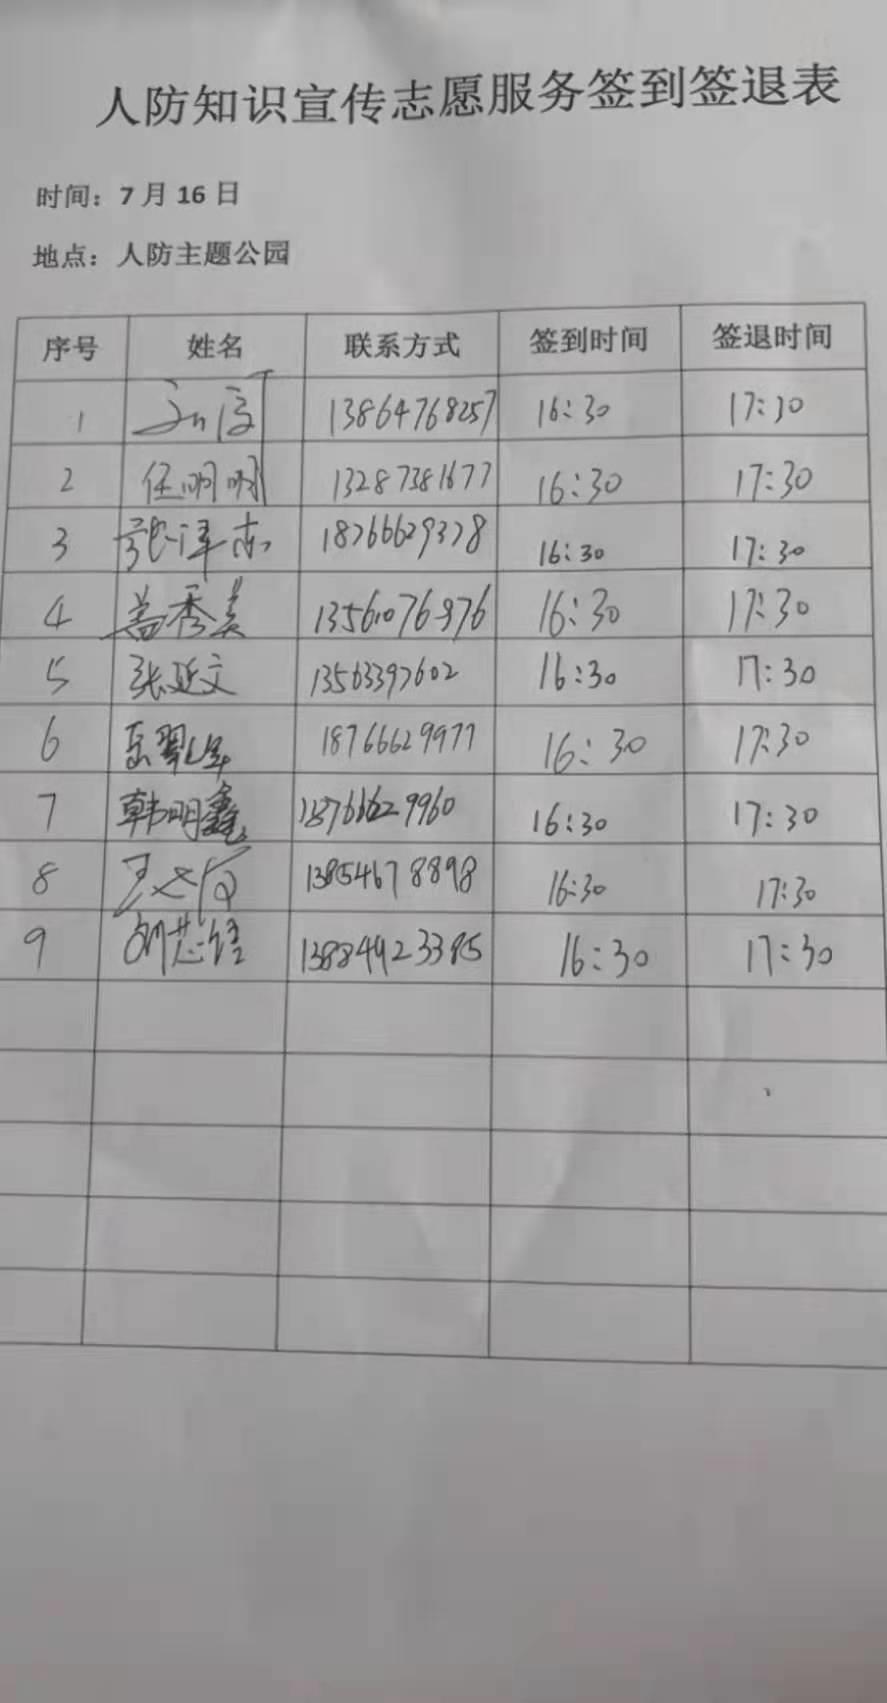 人防知识宣传志愿服务签到签退表
时间：7月16日
地点：人防主题公园
序号 姓名 联系方式 签到时间 签退时间
1 13864768257 16:30 17:30
2 任明明 13287381677 16:30 17:30
3 张泽东 18766629378 16:30 17:30
4 盖秀美 13561076976 16:30 17:30
5 张延文 13563397602 16:30 17:30
6 18766629977 16:30 17:30
7 韩明鑫 18766629960 16:30 17:30
8 13854678898 16:30 17:30
9 16:30 17:30